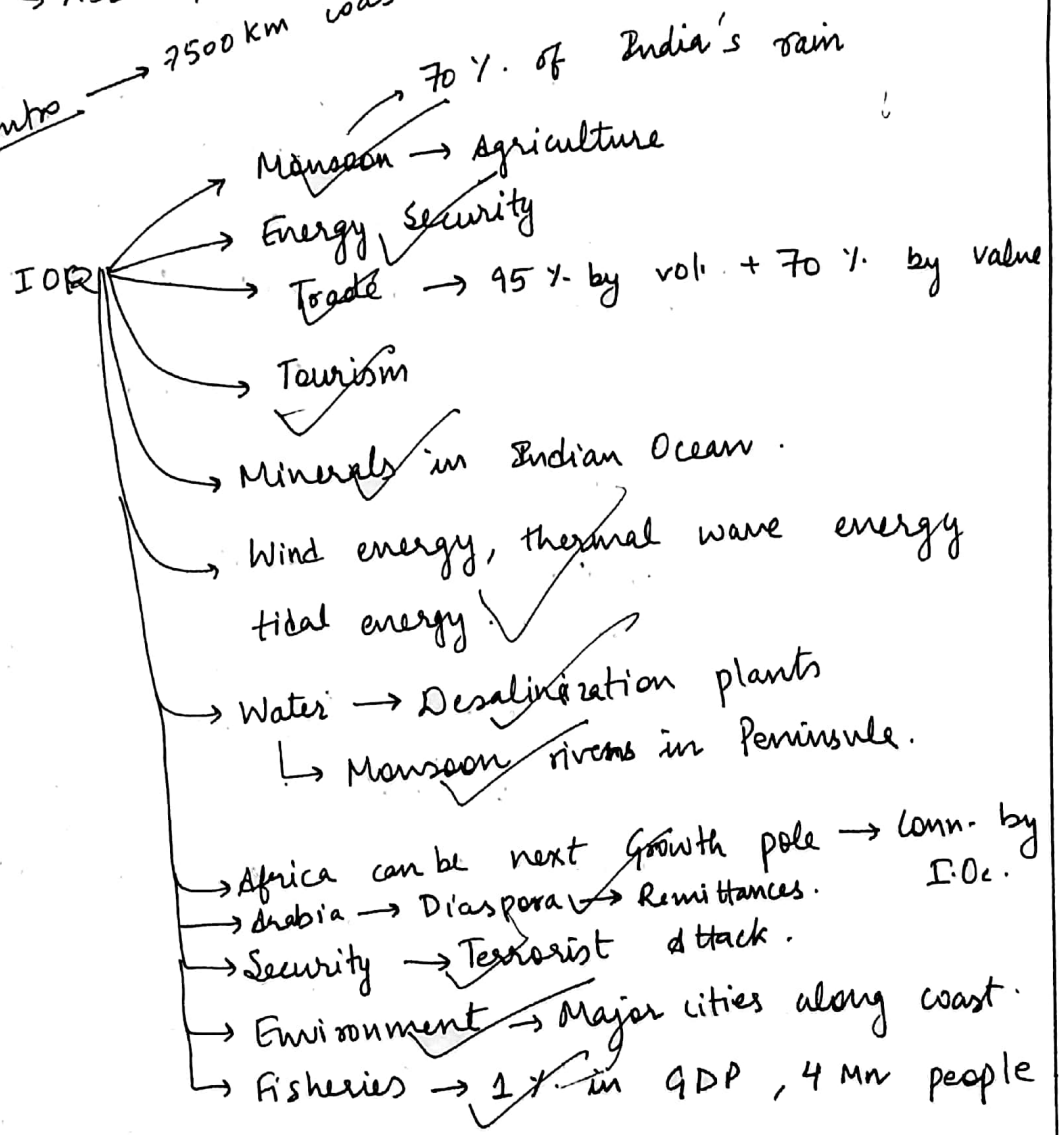 → 7500 km
→ 70 %. of India's rain
Monsoon → Agriculture
Energy Security
IOR
Trade → 95 % by vol. + 70 % by value
Tourism
Minerals in Indian Ocean.
Wind energy, thermal wave energy
tidal energy.
Water → Desalinization plants
↳ Monsoon rivers in Peninsula.
→ Africa can be next Growth pole → Conn. by
I.Oc.
→ Arabia → Diaspora → Remittances.
→ Security → Terrorist Attack.
→ Environment → Major cities along coast.
→ Fisheries → 1 % in GDP, 4 Mn people